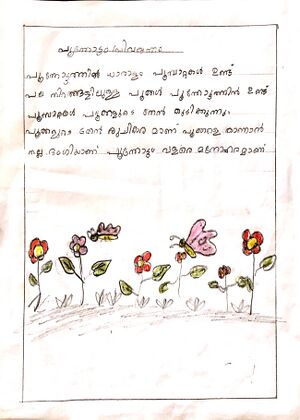 പൂന്തോട്ടം വിവരണം
പൂന്തോട്ടത്തിൽ ധാരാളം പൂമ്പാറ്റകൾ ഉണ്ട്
പല നിറങ്ങളിലുള്ള പൂക്കൾ പൂന്തോട്ടത്തിൽ ഉണ്ട്
പൂമ്പാറ്റകൾ പൂക്കളുടെ തേൻ കുടിക്കുന്നു.
പൂക്കളുടെ തേൻ രുചിയേറെ മാണ് പൂക്കളെ കാണാൻ
നല്ല ഭംഗിയാണ് പൂന്തോട്ടം വളരെ മനോഹരമാണ്